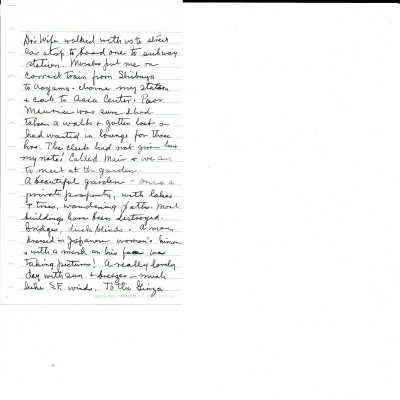 Dr's Wife walked with us to street
car stop to board one to subway
station. put me on
correct train from Shibuya
to Aoyama - chome my station
+ cab to Asia Center. Poor
Maurice was sure I had
taken a walk + gotten lost or
had waited in lounge for three
hrs. The clerk had not given him
my note! Called Meir + we are
to meet at the garden.
A beautiful garden - once a
private property, with lakes
+ trees, wandering paths. Most
buildings have been destroyed.
bridges, duck blinds. A man
dressed in Japanese women's kimono
+ with a mask on his face was
taking pictures! A really lovely
day with sun + breezes - much
like S.F. winds. To the Ginza